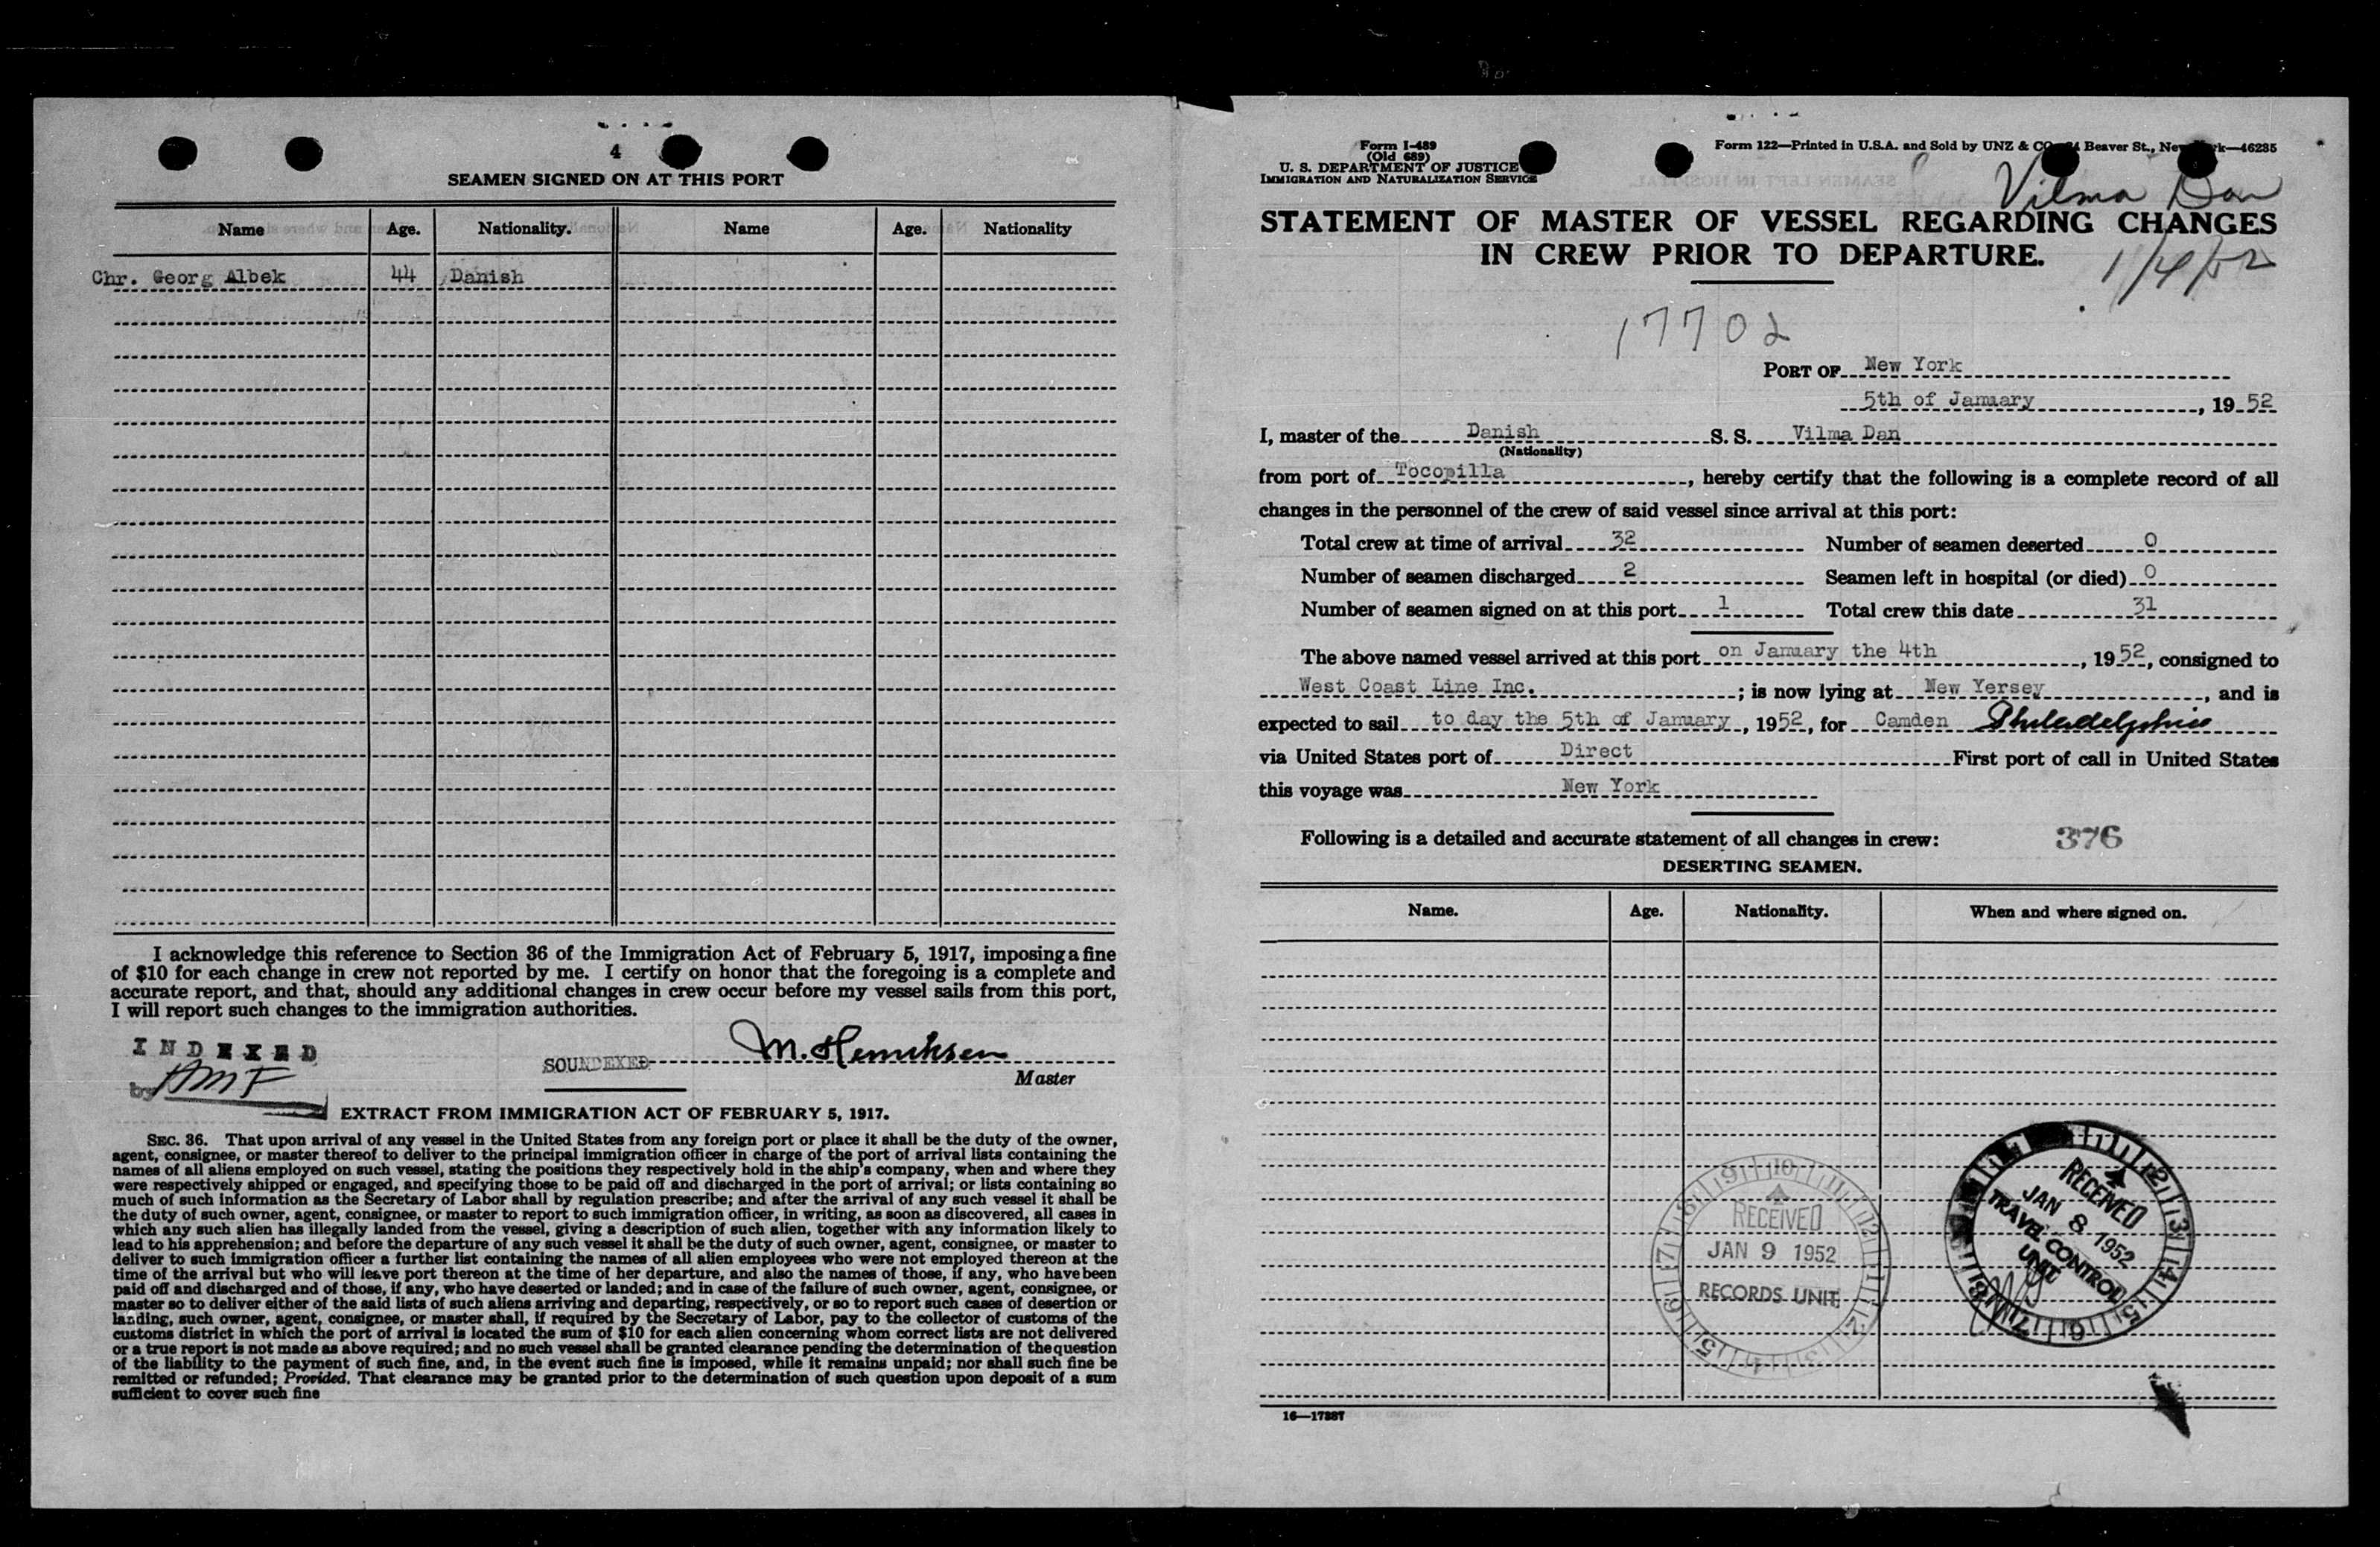 4
SEAMEN SIGNED ON AT THIS PORT
Name Age. Nationality. Name Age. Nationality
Chr. Georg Albek 44 Danish
I acknowledge this reference to Section 36 of the Immigration Act of February 5, 1917, imposing a fine
of $10 for each change in crew not reported by me. I certify on honor that the foregoing is a complete and
accurate report, and that, should any additional changes in crew occur before my vessel sails from this port,
I will report such changes to the immigration authorities.
INDEXED
by AMF
SOUNDEXED M. Henriksen
Master
EXTRACT FROM IMMIGRATION ACT OF FEBRUARY 5, 1917.
SEC. 36. That upon arrival of any vessel in the United States from any foreign port or place it shall be the duty of the owner,
agent, consignee, or master thereof to deliver to the principal immigration officer in charge of the port of arrival lists containing the
names of all aliens employed on such vessel, stating the positions they respectively hold in the ship's company, when and where they
were respectively shipped or engaged, and specifying those to be paid off and discharged in the port of arrival; or lists containing so
much of such information as the Secretary of Labor shall by regulation prescribe; and after the arrival of any such vessel it shall be
the duty of such owner, agent, consignee, or master to report to such immigration officer, in writing, as soon as discovered, all cases in
which any such alien has illegally landed from the vessel, giving a description of such alien, together with any information likely to
lead to his apprehension; and before the departure of any such vessel it shall be the duty of such owner, agent, consignee, or master to
deliver to such immigration officer a further list containing the names of all alien employees who were not employed thereon at the
time of the arrival but who will leave port thereon at the time of her departure, and also the names of those, if any, who have been
paid off and discharged and of those, if any, who have deserted or landed; and in case of the failure of such owner, agent, consignee, or
master so to deliver either of the said lists of such aliens arriving and departing, respectively, or so to report such cases of desertion or
landing, such owner, agent, consignee, or master shall, if required by the Secretary of Labor, pay to the collector of customs of the
customs district in which the port of arrival is located the sum of $10 for each alien concerning whom correct lists are not delivered
or a true report is not made as above required; and no such vessel shall be granted clearance pending the determination of the question
of the liability to the payment of such fine, and, in the event such fine is imposed, while it remains unpaid; nor shall such fine be
remitted or refunded; Provided, That clearance may be granted prior to the determination of such question upon deposit of a sum
sufficient to cover such fine
Form I-489
(Old 689)
U. S. DEPARTMENT OF JUSTICE
IMMIGRATION AND NATURALIZATION SERVICE
Form 122—Printed in U.S.A. and Sold by UNZ & CO Beaver St., New York—46285
Vilma Dan
STATEMENT OF MASTER OF VESSEL REGARDING CHANGES
IN CREW PRIOR TO DEPARTURE.
1/4/52
17702
PORT OF New York
5th of January, 1952
I, master of the Danish S. S. Vilma Dan
(Nationality)
from port of Tocopilla, hereby certify that the following is a complete record of all
changes in the personnel of the crew of said vessel since arrival at this port:
Total crew at time of arrival 32 Number of seamen deserted 0
Number of seamen discharged 2 Seamen left in hospital (or died) 0
Number of seamen signed on at this port 1 Total crew this date 31
The above named vessel arrived at this port on January the 4th, 1952, consigned to
West Coast Line Inc.; is now lying at New Yersey, and is
expected to sail to day the 5th of January, 1952, for Camden Philadelphia
via United States port of Direct First port of call in United States
this voyage was New York
Following is a detailed and accurate statement of all changes in crew: 376
DESERTING SEAMEN.
Name. Age. Nationality. When and where signed on.
RECEIVED
JAN 9 1952
RECORDS UNIT
RECEIVED
JAN 8 1952
TRAVEL CONTROL
UNIT
16—17887